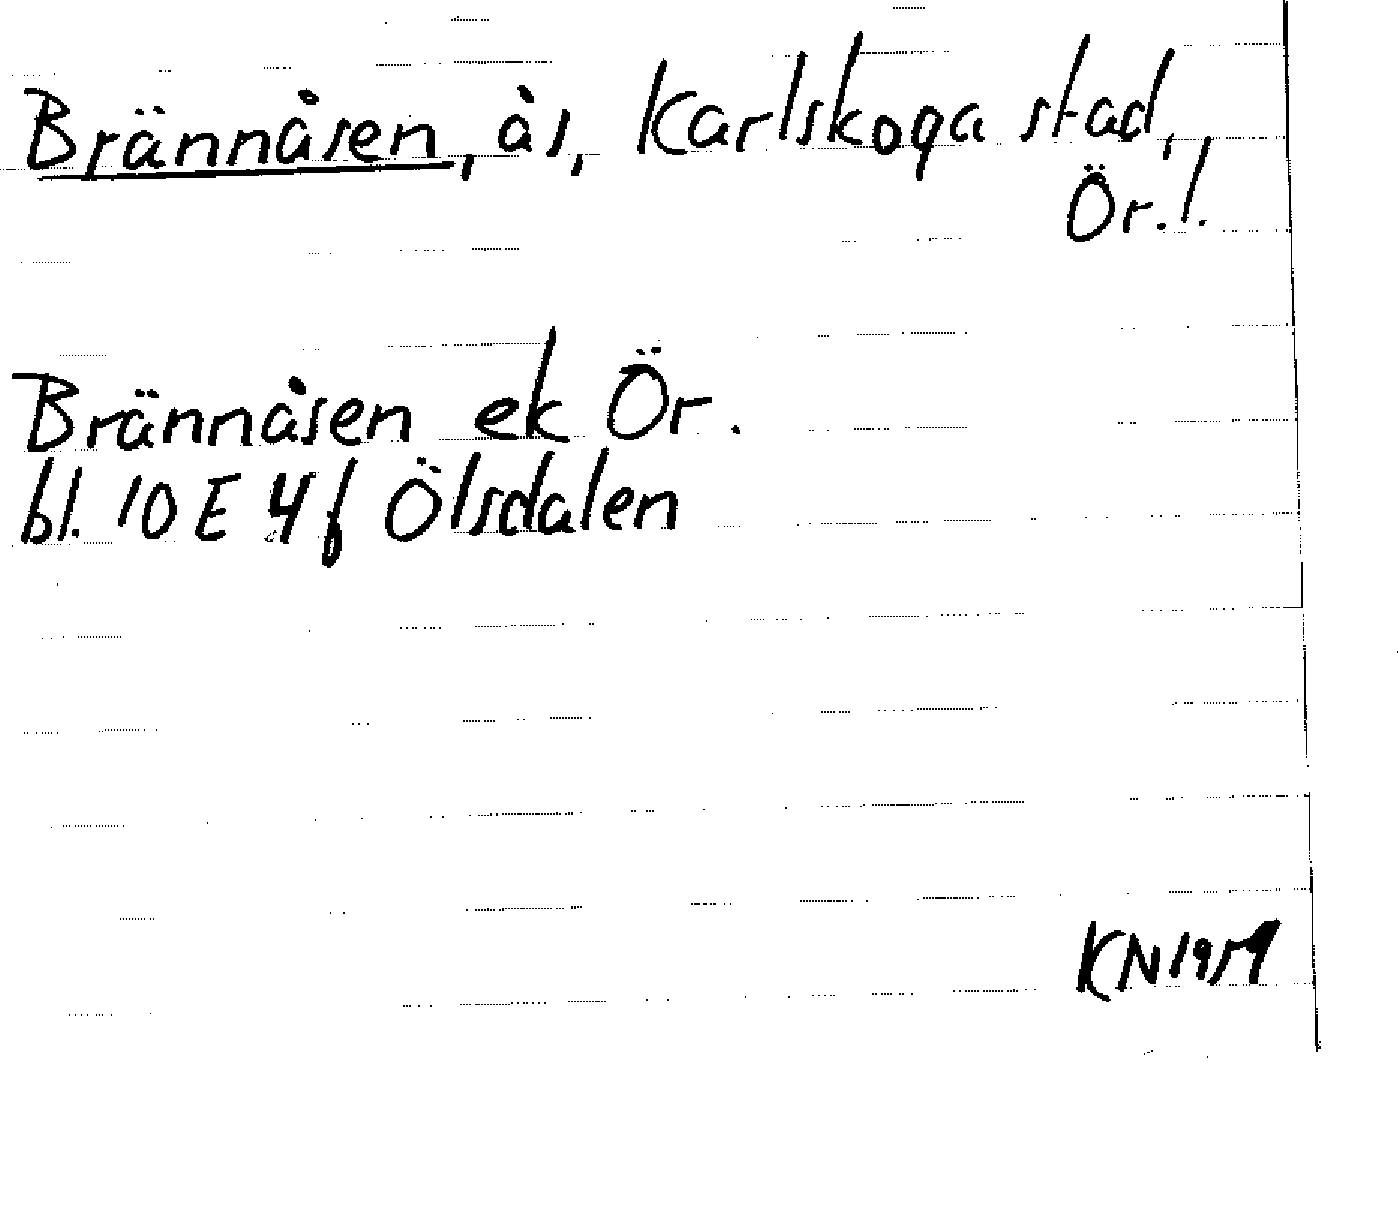 Brännåsen, ås, Karlskoga stad,
Ör. l.
Brännåsen ek Ör.
bl. 10 E 4f Ölsdalen
KN